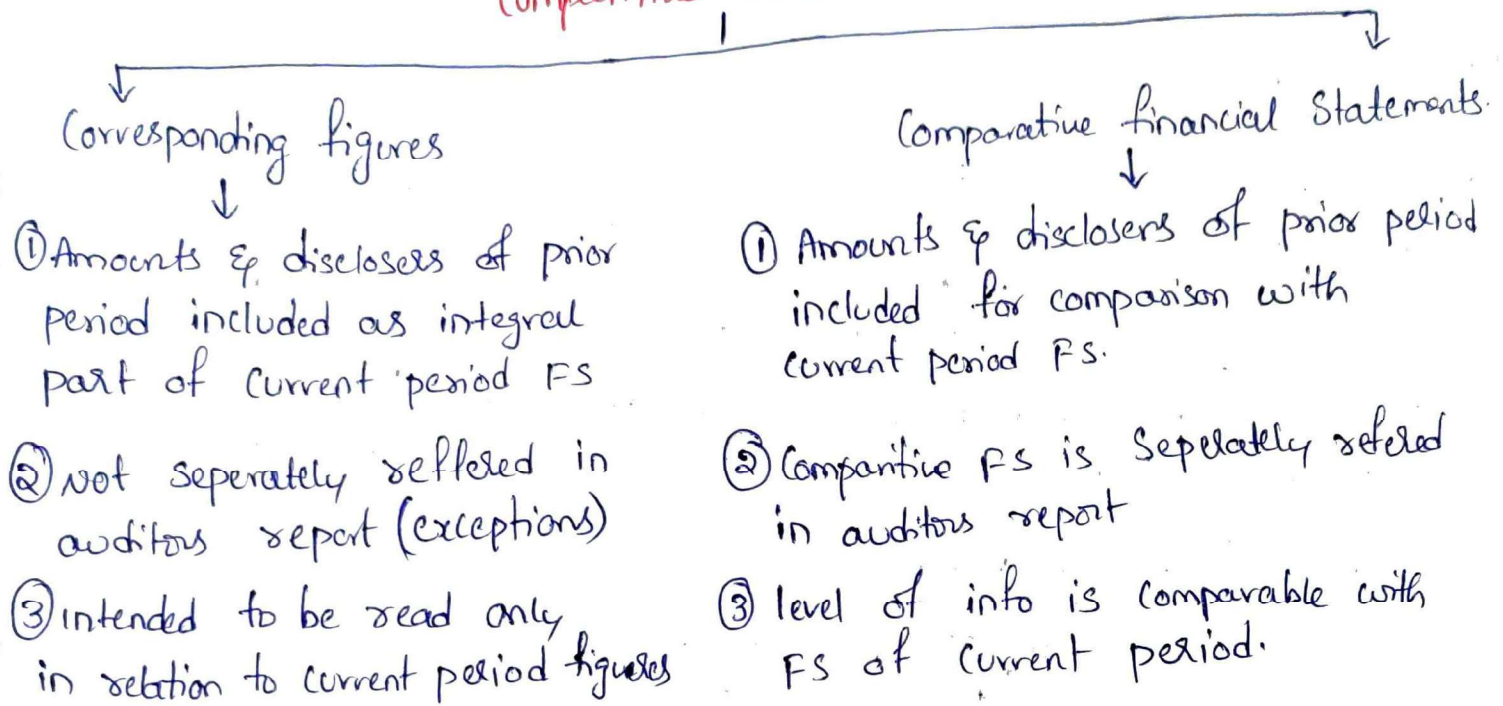 Corresponding figures
① Amounts & disclosers of prior
period included as integral
part of current period FS
② not seperately reffered in
auditors report (exceptions)
③ intended to be read only
in relation to current period figures
Comparative financial Statements.
① Amounts & disclosers of prior period
included for comparison with
current period FS.
② Comparitive FS is Seperately refered
in auditors report
③ level of info is comparable with
FS of current period.